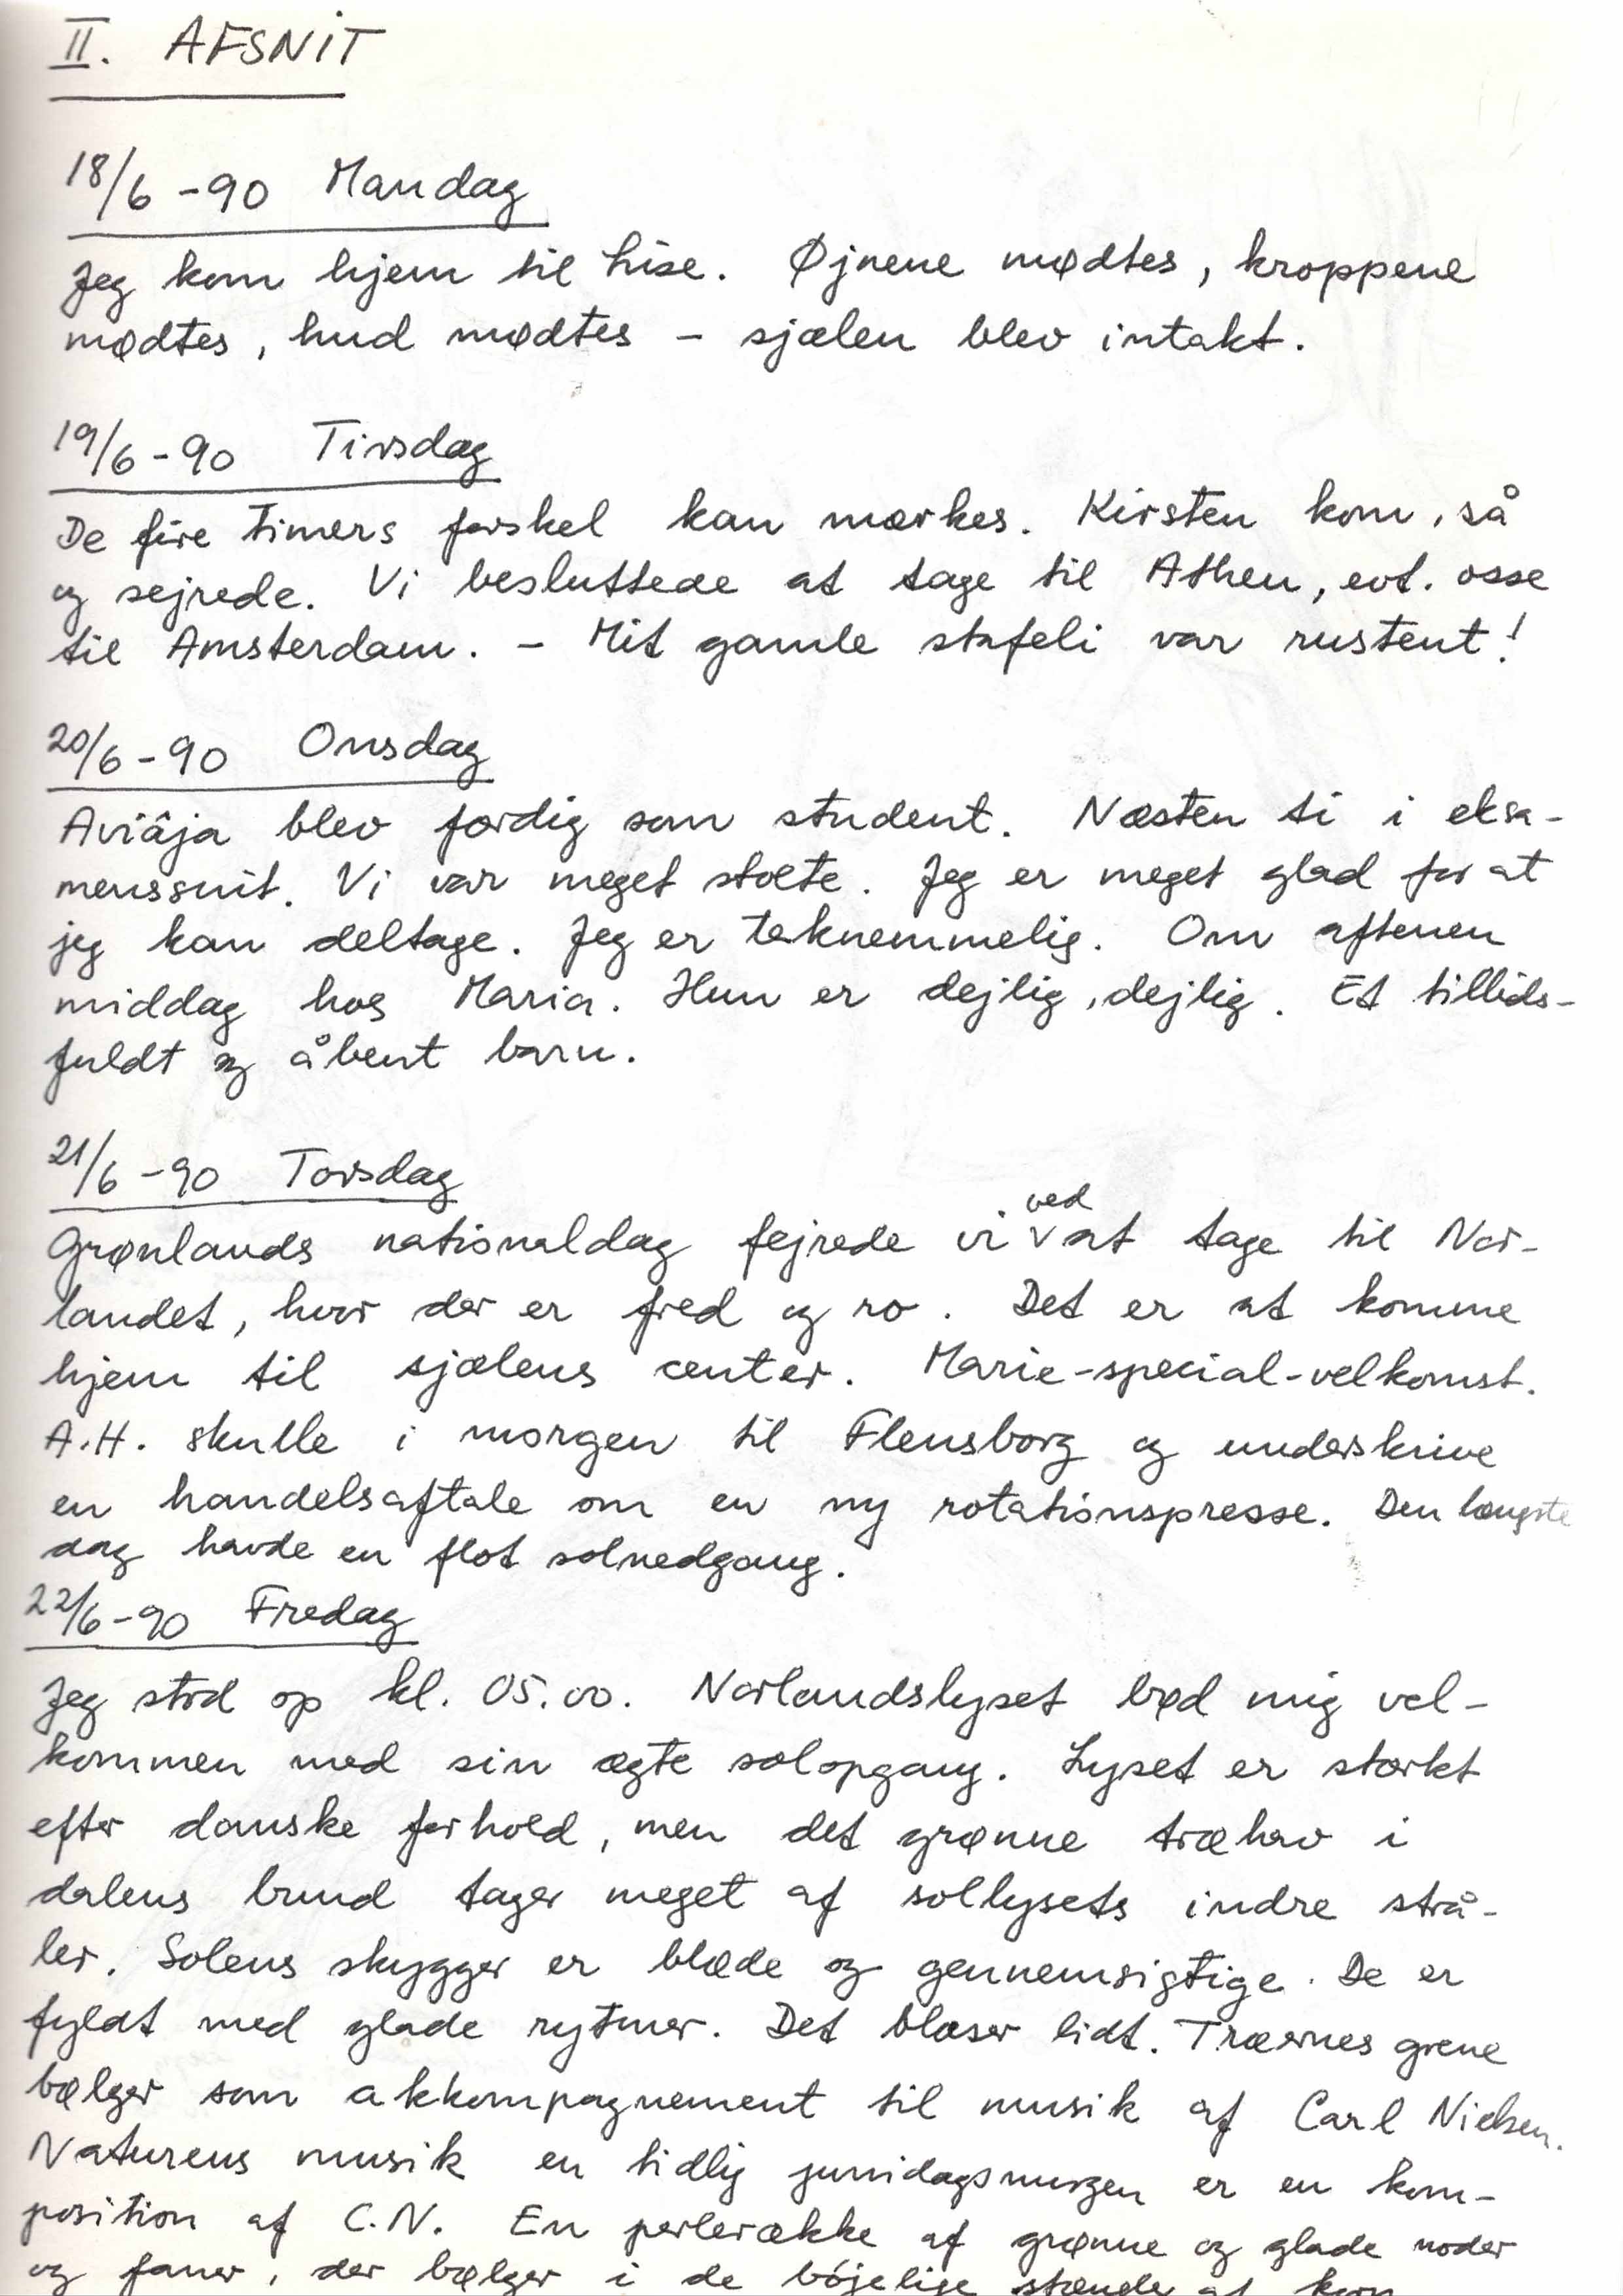 II. AFSNIT
18/6 -90 Mandag
Jeg kom hjem til Lise. Øjnene mødtes, kroppene
mødtes, hud mødtes – sjælen blev intakt.
19/6 -90 Tirsdag
De fire timers forskel kan mærkes. Kirsten kom, så
og sejrede. Vi besluttede at tage til Athen, evt. osse
til Amsterdam. – Mit gamle stafeli var rustent!
20/6 -90 Onsdag
Aviâja blev færdig som student. Næsten ti i eksa-
menssnit. Vi var meget stolte. Jeg er meget glad for at
jeg kan deltage. Jeg er taknemmelig. Om aftenen
middag hos Maria. Hun er dejlig, dejlig. Et tillids-
fuldt og åbent barn.
21/6 -90 Torsdag
ved
Grønlands nationaldag fejrede vi v at tage til Nor-
landet, hvor der er fred og ro. Det er at komme
hjem til sjælens center. Marie-special-velkomst.
A.H. skulle i morgen til Flensborg og underskrive
en handelsaftale om en ny rotationspresse. Den længste
dag havde en flot solnedgang.
22/6 -90 Fredag
Jeg stod op kl. 05.00. Norlandslyset bød mig vel-
kommen med sin ægte solopgang. Lyset er stærkt
efter danske forhold, men det grønne træhav i
dalens bund tager meget af sollysets indre strå-
ler. Solens skygger er bløde og gennemsigtige. De er
fyldt med glade rytmer. Det blæser lidt. Træernes grene
bølger som akkompagnement til musik af Carl Nielsen.
Naturens musik en tidlig junidagsmorgen er en kom-
position af C.N. En perlerække af grønne og glade noder
og faner, der bølger i de bøjelige stænde af korn